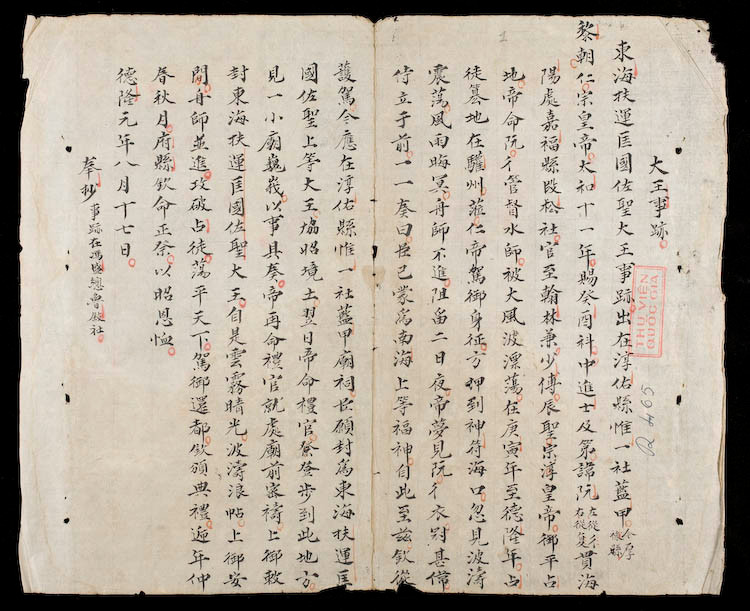 大王事跡
東海扶運匡國佐聖大王事跡出在淳佑縣惟一社藍甲
黎朝仁宗皇帝太和十一年賜癸酉科中進士及第諱阮左從彳右從复貫海
陽處嘉福縣段松社官至翰林兼少傅辰聖宗淳皇帝御平占
地帝命阮彳管督水師被大風波漂蕩在庚寅年至德隆年占
徒簒地在驩州仁帝駕御身征方到神符海口忽見波濤
震蕩風雨晦冥舟師不進阻留二日夜帝夢見阮彳衣冠甚偉
侍立于前一一奏曰臣已蒙為南海上等福神自此至茲欽從
護駕今應在淳佑縣惟一社藍甲廟祠臣願封為東海扶運匡
國佐聖上等大王協昭境土翌日帝命禮官登步到此地方
見一小廟巍峩以事具奏帝再命禮官就處廟前密禱上御敕
封東海扶運匡國佐聖大王自是雲霧晴光波濤浪帖上御安
閉舟師並進攻破占徒蕩平天下駕御還都欽頒典禮遞年仲
春秋月府縣欽命正祭以昭恩恤
德隆元年八月十七日
奉抄事跡在馮盛總魯殿社
THƯ VIỆN
QUỐC GIA